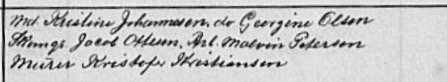 Md. Kristine Johannesen, do Georgine Olsen
Skomgr. Jacob Ottesen, Arb. Malvin Petersen
Murer Kristofr Kristiansen